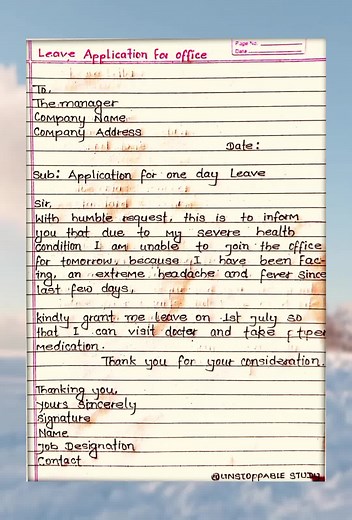 Page No:
Date:
Leave Application for office
To,
The manager
Company Name
Company Address
Date:
Sub: Application for one day Leave
Sir,
With humble request, this is to inform
you that due to my severe health
condition I am unable to join the office
for tomorrow, because I have been fac-
ing, an extreme headache and fever since
last few days.
kindly grant me leave on 1st july so
that I can visit docter and take
medication.
Thank you for your consideration.
Thanking you,
yours sincerely
Signature
Name
Job Designation
Contact
@UNSTOPPABLE